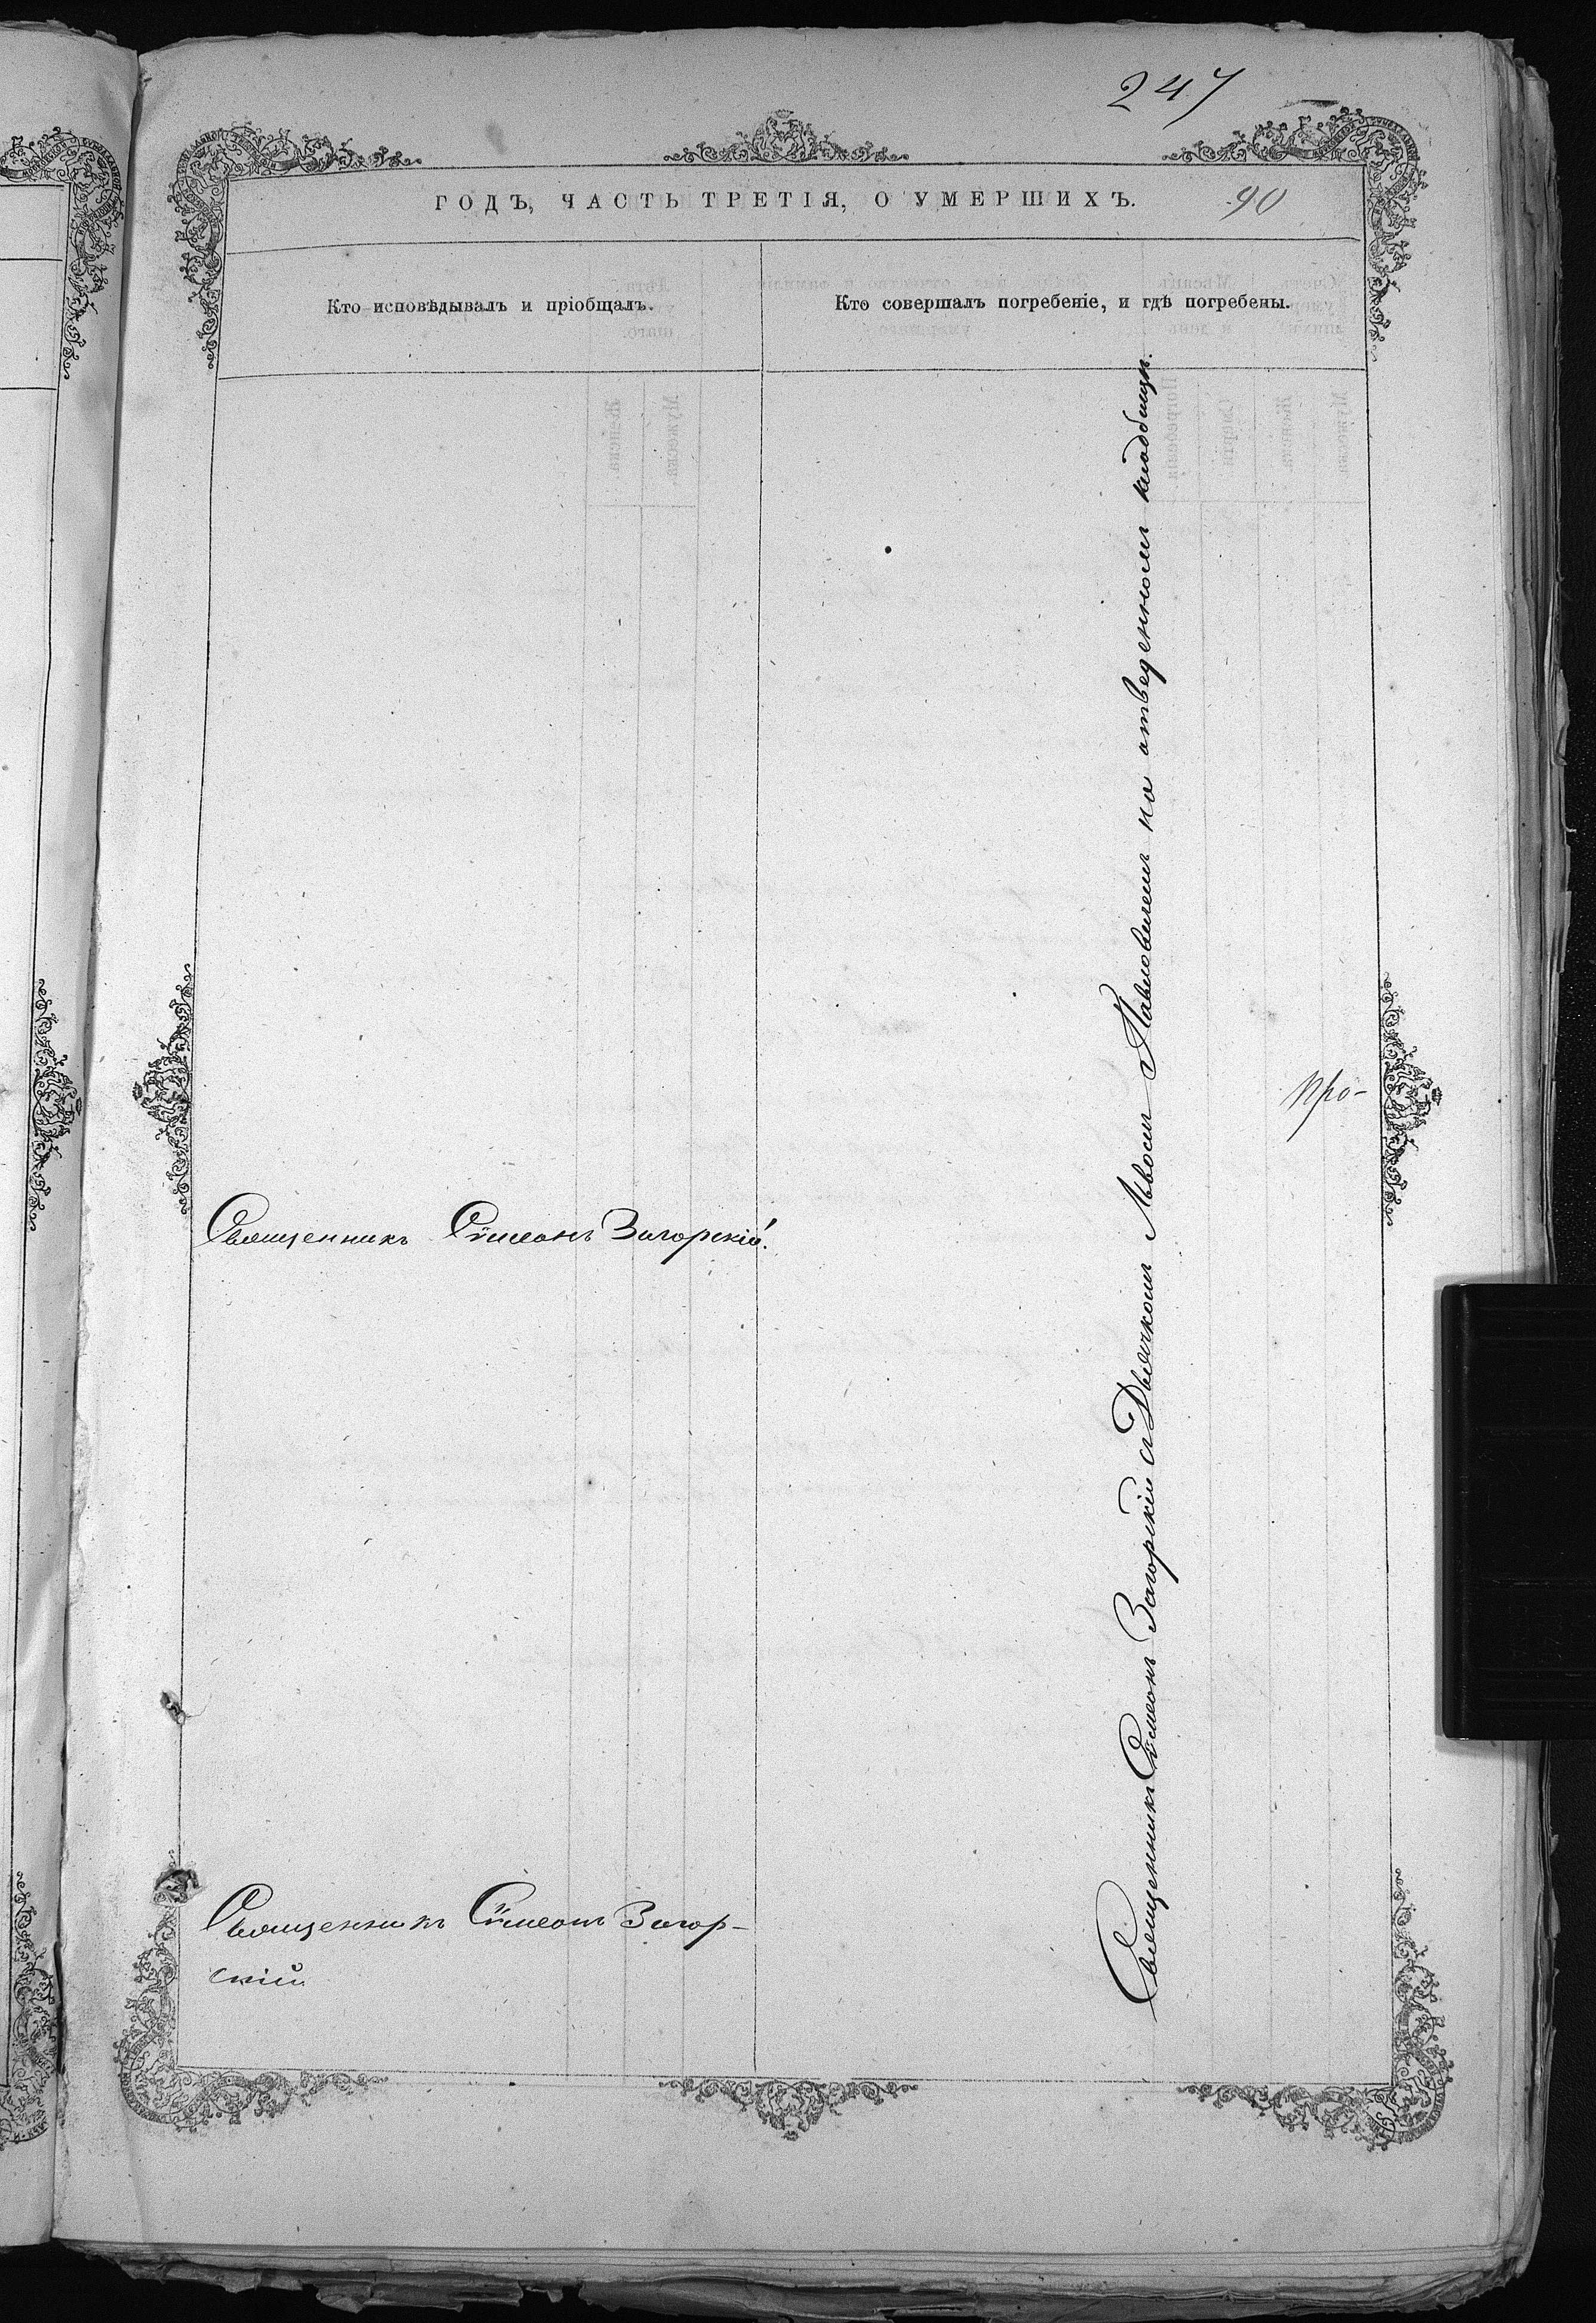 247
ГОДЪ, ЧАСТЬ ТРЕТІЯ, О УМЕРШИХЪ.
90
Кто исповѣдывалъ и пріобщалъ.
Кто совершалъ погребеніе, и гдѣ погребены.
Священникъ Сѵмеонъ Загорскій.
Священникъ Сѵмеонъ Загор-
скій
Священникъ Сѵмеонъ Загорскій съ Дьячкомъ Павловичемъ на отведенномъ кладбищѣ.
про-